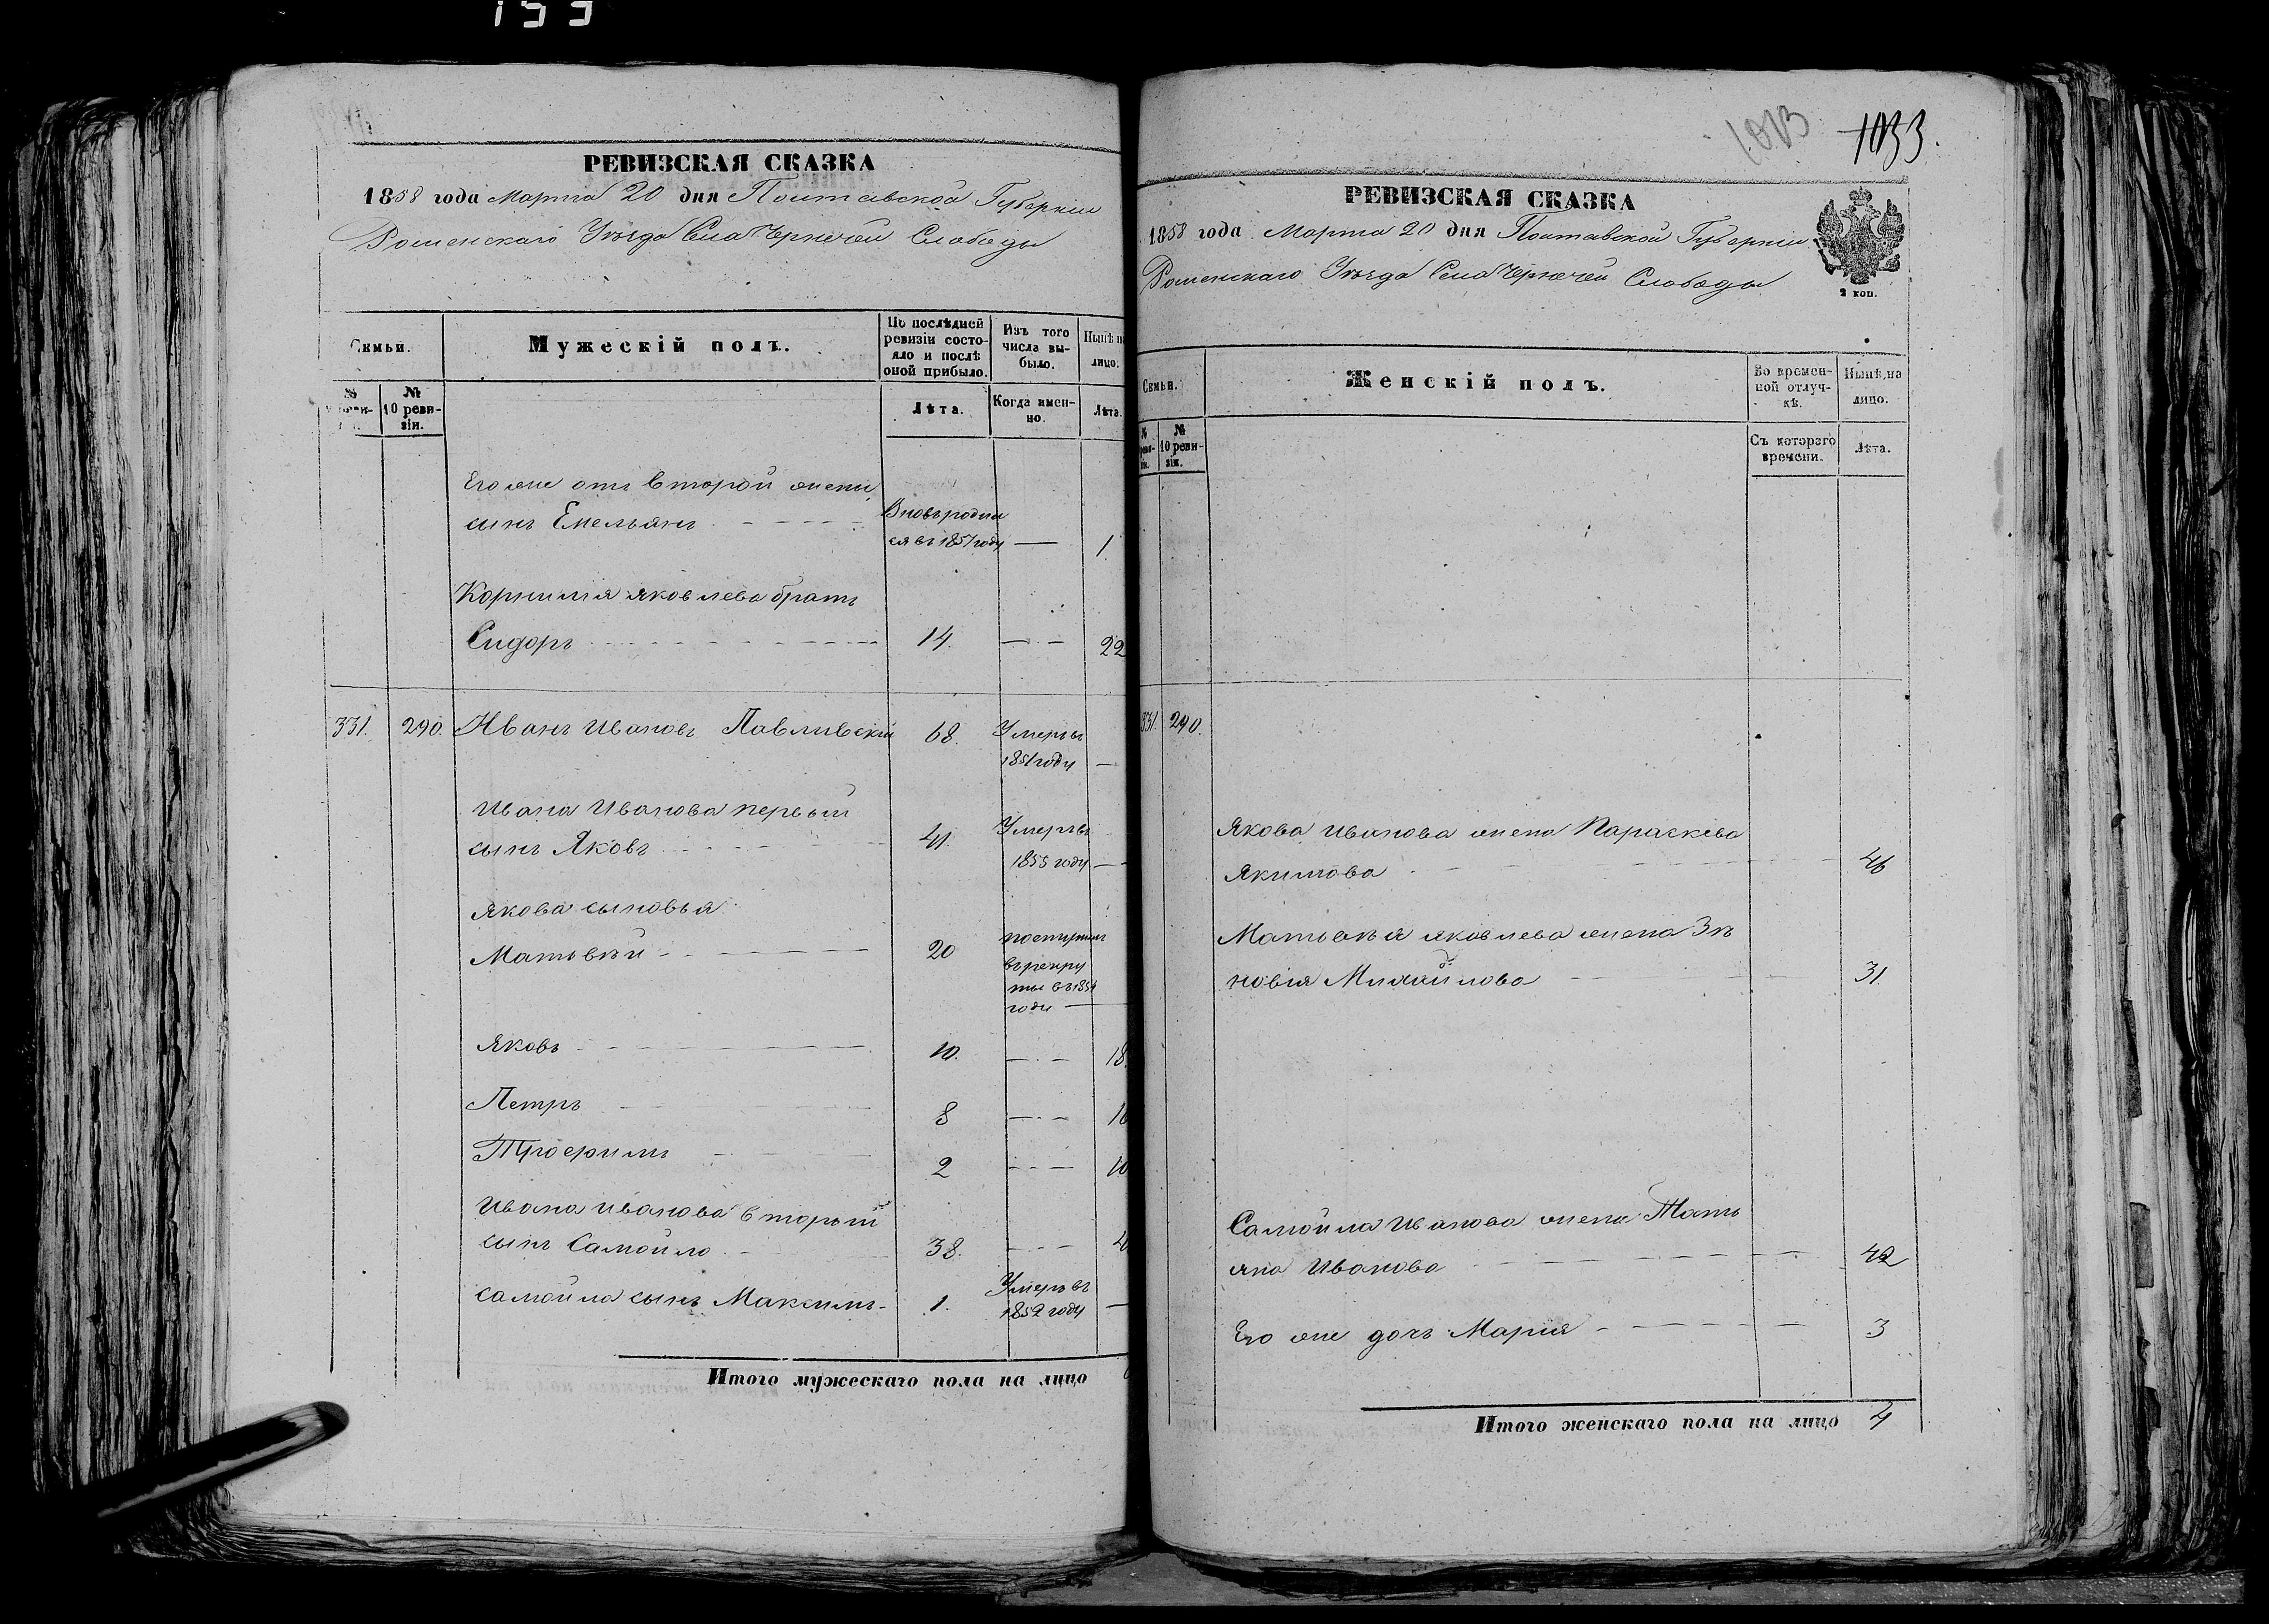 159
РЕВИЗСКАЯ СКАЗКА
1858 года Марта 20 дня Полтавской Губернии
Роменскаго Уѣзда Села Чернечей Слободы
Семьи.
Мужескій полъ.
По послѣдней ревизіи состояло и послѣ оной прибыло.
Изъ того числа выбыло.
Нынѣ на лицо.
№ ревизіи.
№ 10 ревизіи.
Лѣта.
Когда именно.
Лѣта.
Его же отъ второй жены
сынъ Емельянъ
Вновь родил
ся въ 1857 году — 1.
Корнилія Яковлева братъ
Сидоръ 14. — 22
331. 290. Иванъ Ивановъ Павливскій 68. Умеръ въ
1851 году —
Ивана Иванова первый
сынъ Яковъ 41. Умеръ въ
1855 году —
Якова сыновья
Матвѣй 20 поступилъ
въ рекру
ты въ 1854
году —
Яковъ 10. — 18.
Петръ 8 — 16
Трофимъ 2 — 10
Ивана Иванова вторый
сынъ Самойло 38. — 4
Самойла сынъ Максимъ 1. Умеръ въ
1852 году —
Итого мужескаго пола на лицо
1013 1033.
РЕВИЗСКАЯ СКАЗКА
1858 года Марта 20 дня Полтавской Губерніи
Роменскаго Уѣзда Села Чернечей Слободы
2 коп.
Семьи.
Женскій полъ.
Во временной отлучкѣ.
Нынѣ на лицо.
№ ревизіи.
№ 10 ревизіи.
Съ котораго времени.
Лѣта.
331. 290.
Якова Иванова жена Параскева
Якимова 46
Матвѣя Яковлева жена Зѣ
новія Михайлова 31.
Самойла Иванова жена Тать
яна Иванова 42
Его же дочь Марія 3
Итого женскаго пола на лицо 4